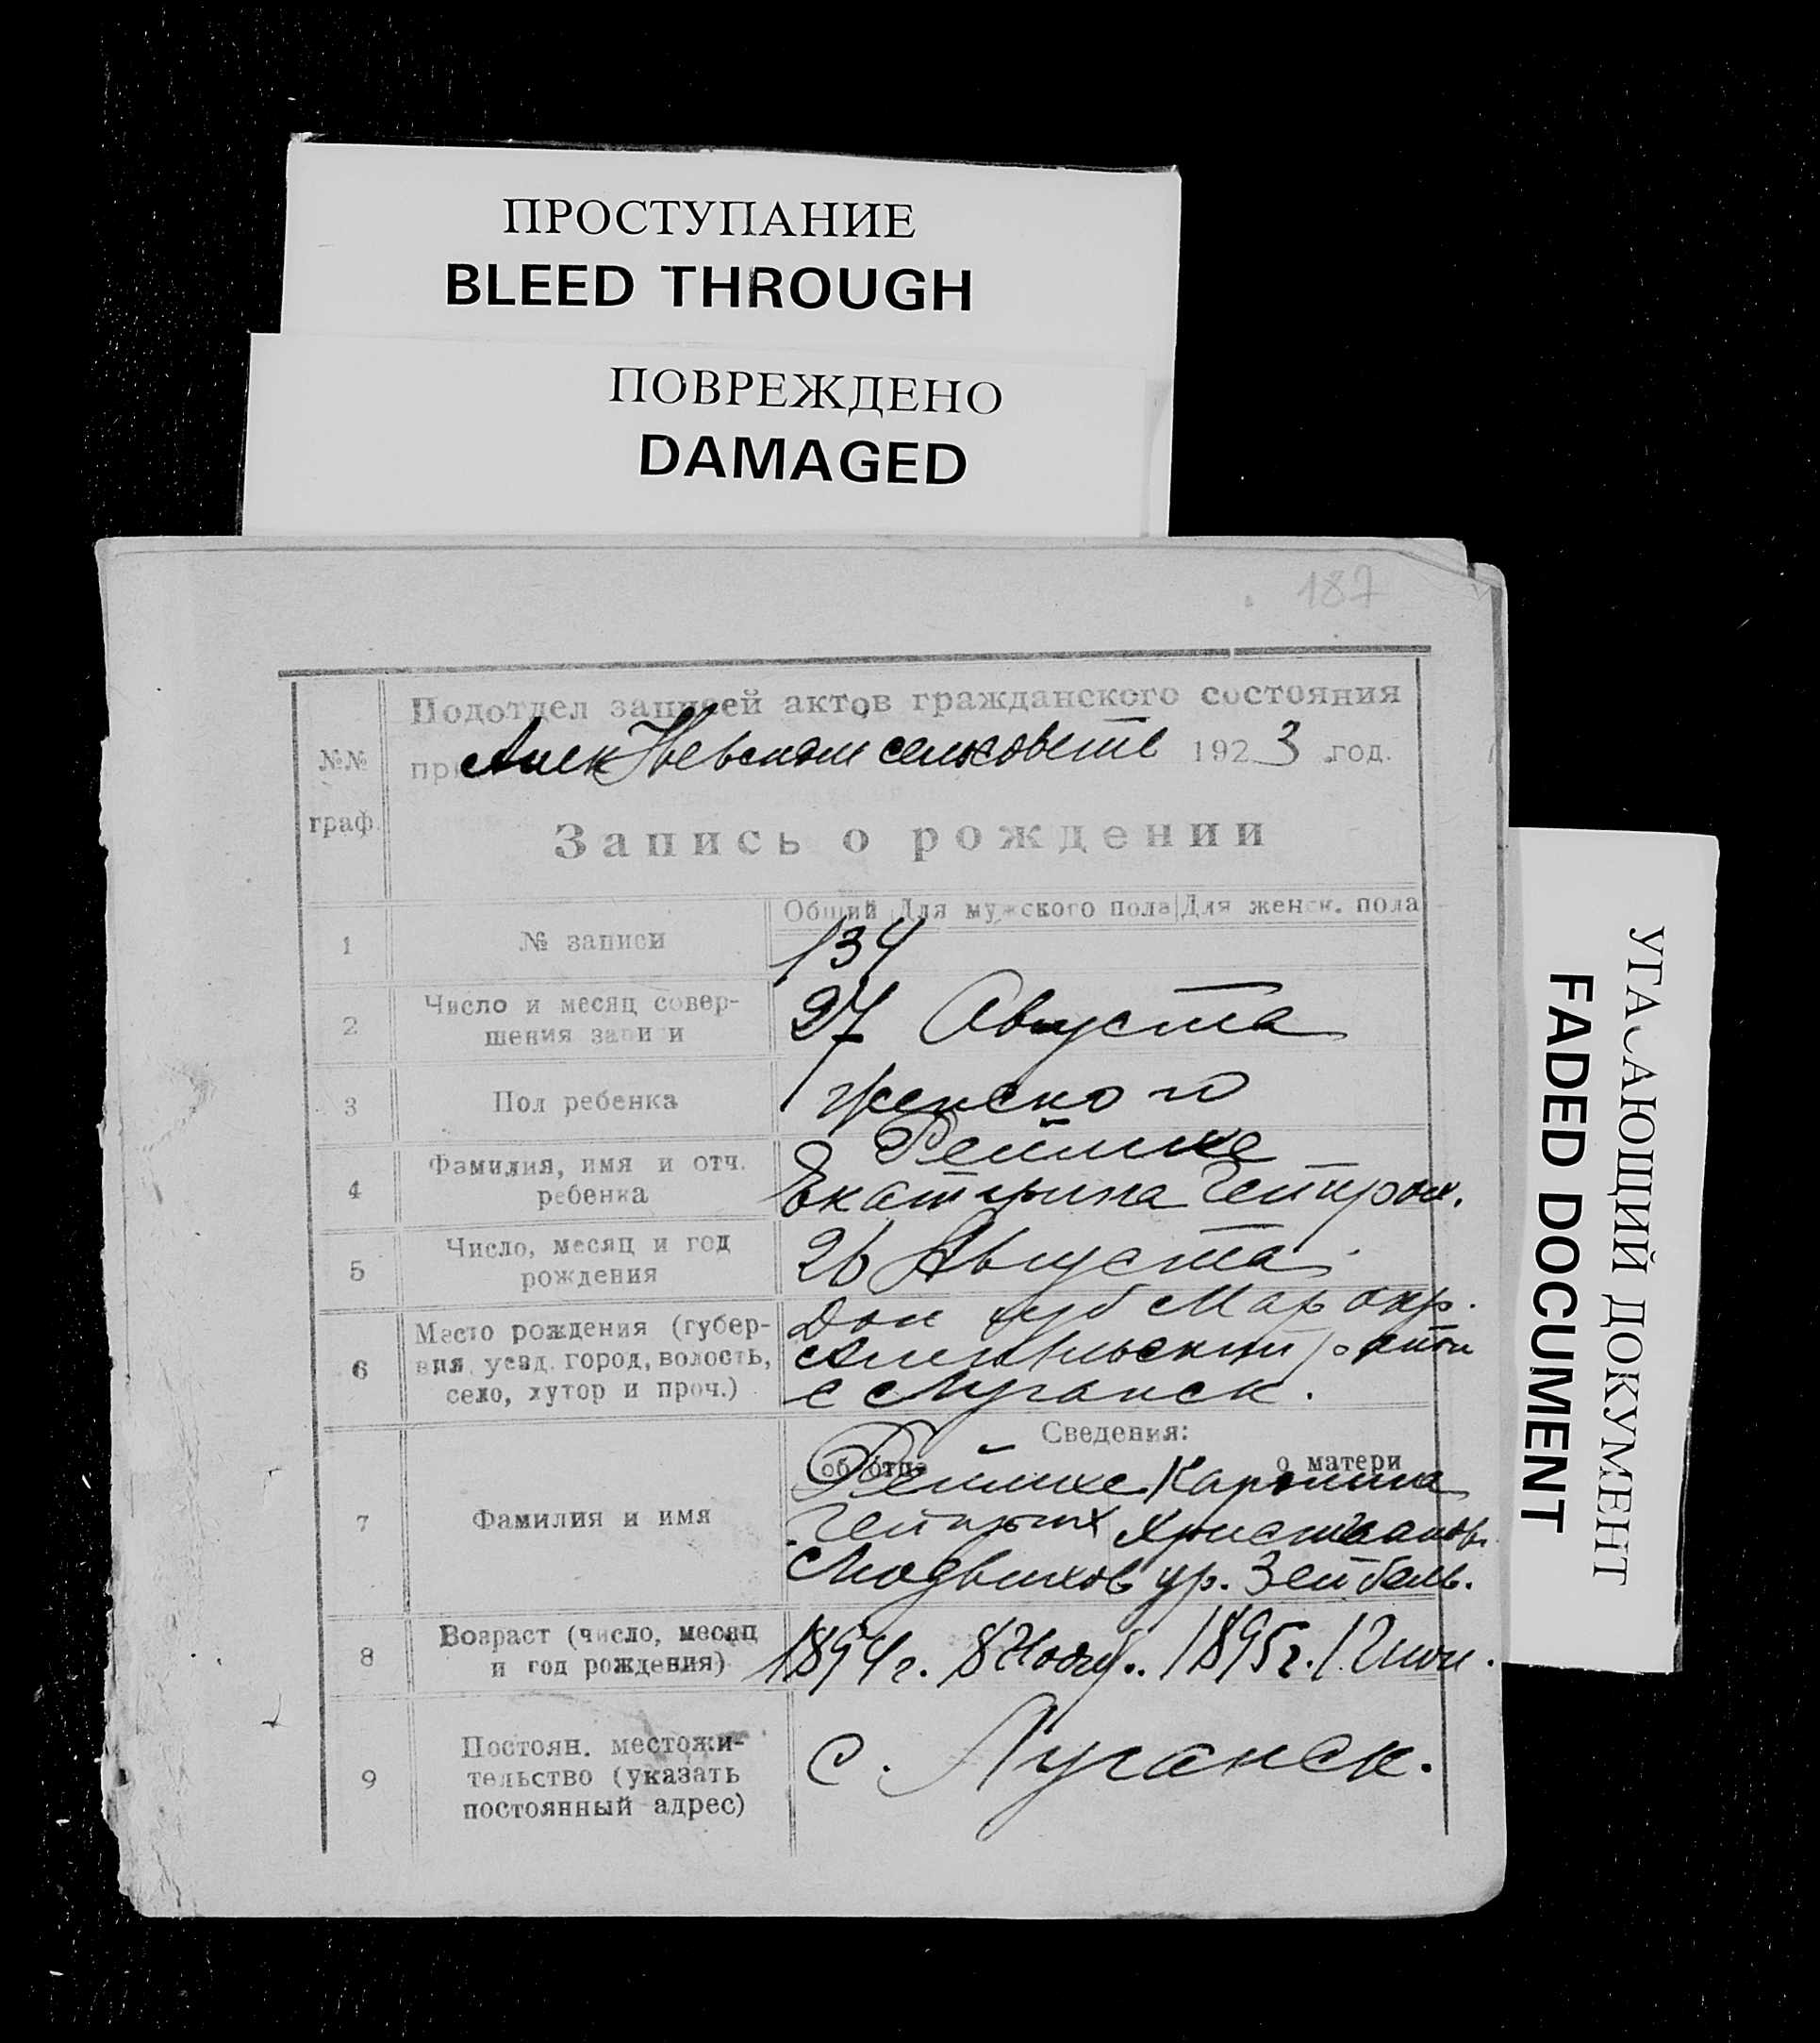 ПРОСТУПАНИЕ
BLEED THROUGH
ПОВРЕЖДЕНО
DAMAGED
187
№№
граф.
Подотдел записей актов гражданского состояния
при Алек Невском сельсовете 1923 год.
Запись о рождении
Общий Для мужского пола Для женск. пола
1 № записи 134
2 Число и месяц совер-
шения записи 27 Августа
3 Пол ребенка женского
4 Фамилия, имя и отч.
ребенка Реймхе
Екатерина Гейнрих.
5 Число, месяц и год
рождения 26 Августа.
6 Место рождения (губер-
ния, уезд, город, волость,
село, хутор и проч.)
Дон губ Мар окр.
район
с Луганск.
Сведения:
об отце о матери
7 Фамилия и имя
Реймхе Каролина
Гейнрих Христианов.
Людвихов ур. Зейбель.
8 Возраст (число, месяц
и год рождения) 1894г. 8 Нояб. 1895г. 12 июн.
9 Постоян. местожи-
тельство (указать
постоянный адрес) с. Луганск.
УГАСАЮЩИЙ ДОКУМЕНТ
FADED DOCUMENT